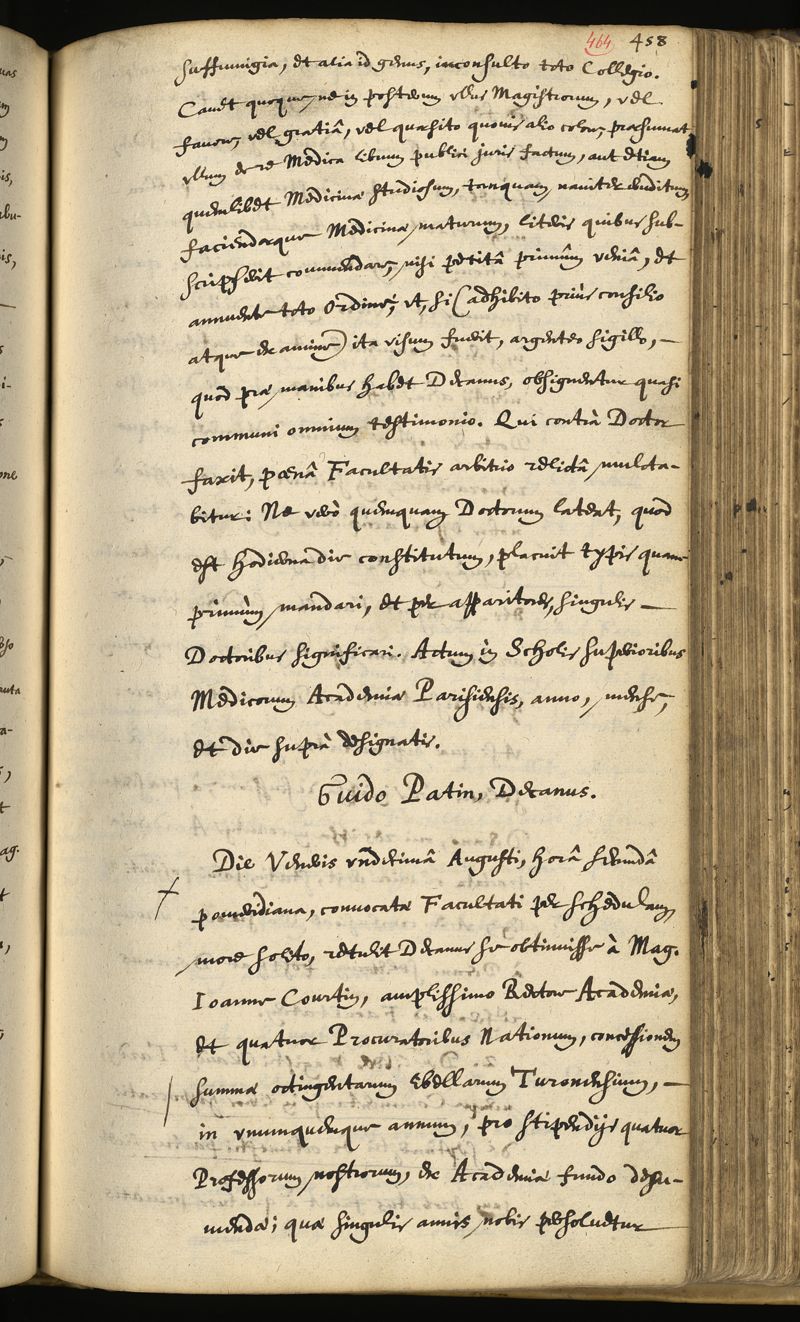 464 458
suffumigia, et alia id genus, inconsulto toto Collegio.
Cavet quoque, ne in posterum ullus Magistrorum, vel
favore, vel gratiâ, vel quaesito quovis alio colore, praesumat
ullum de re Medica librum publici juris factum, aut etiam
quemlibet Medicinae studiosum, tanquam naviter eruditum
faciendaeque Medicinae maturum, literis quibus sub-
scripserit commendare, nisi petitâ primùm veniâ, et
annuente toto Ordine; ut, si (adhibito priùs consilio
atque examine) ita visum fuerit, argenteo sigillo, —
quod prae manibus habet Decanus, obsignentur quasi
communi omnium testimonio. Qui contrà Doctor
faxit, poenâ Facultatis arbitrio relictâ mulcta-
bitur: Ne verò quemquam Doctorum lateat, quod
est hodierna die constitutum, placuit typis quam
primùm mandari, et per apparitores, singulis —
Doctoribus significari. Actum in Scholis superioribus
Medicorum Academiae Parisiensis, anno, mense,
et die suprà designatis.
Guido Patin, Decanus.
Die Veneris undecimâ Augusti, horâ secundâ
pomeridiana, convocatae Facultati per schedulam
more solito, retulit Decanus se obtinuisse à Mag.
Ioanne Courtin, amplissimo Rectore Academiae,
et quatuor Procuratoribus Nationum, concessionem
summae octingentarum libellarum Turonensium, —
in unumquemque annum, pro stipendijs quatuor
Professorum nostrorum, ex Academiae fundo desu-
mendae; quae singulis annis nobis persolvetur